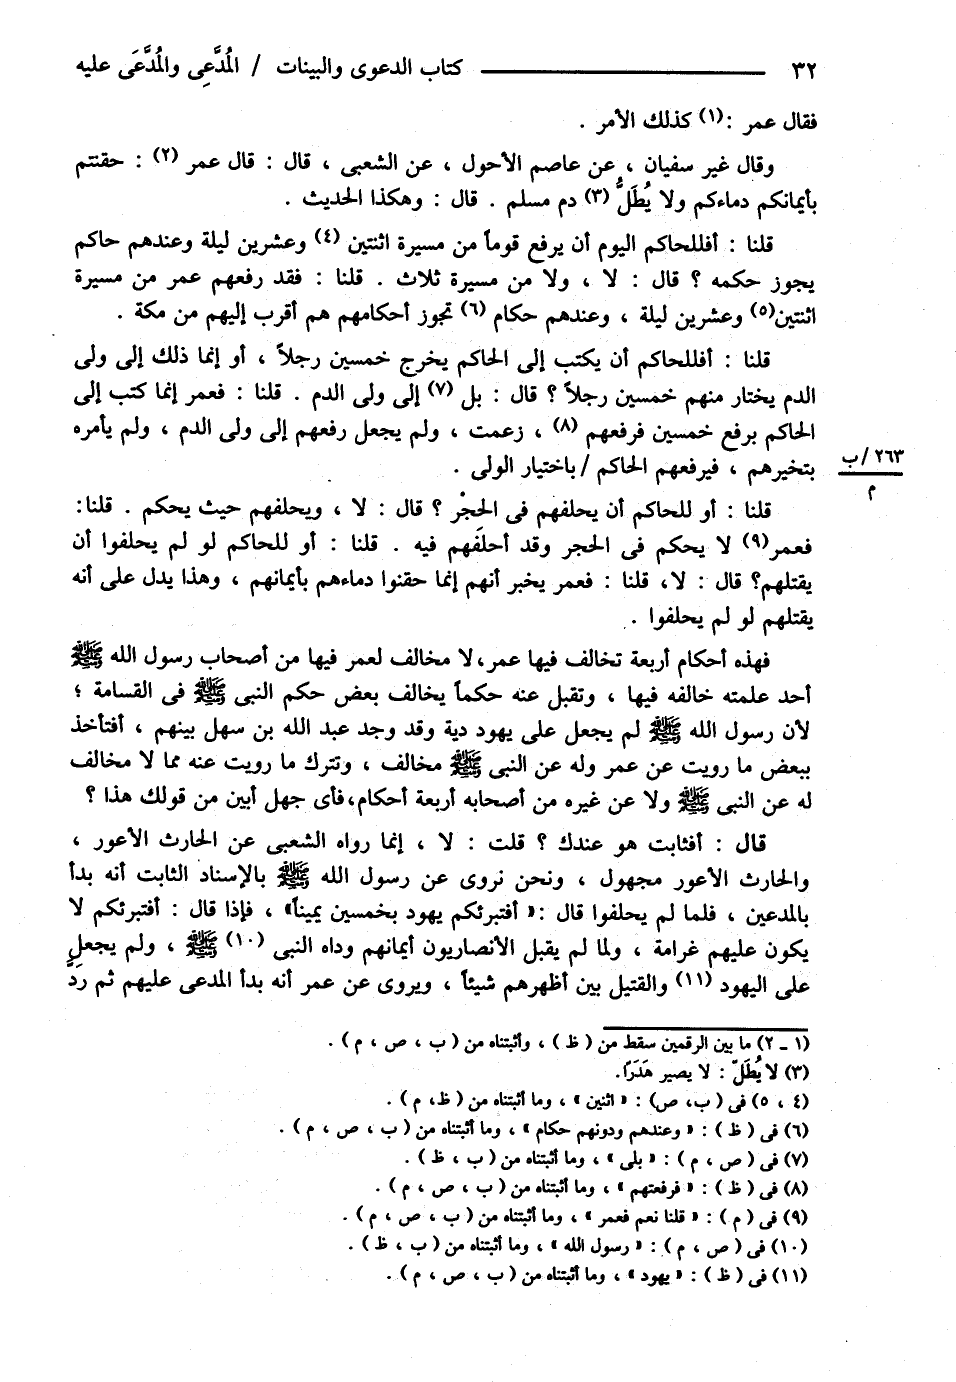 ٣٢ ــــــــــــــــ كتاب الدعوى والبينات / المُدَّعِى والمُدَّعَى عليه
فقال عمر :(١) كذلك الأمر .
وقال غير سفيان ، عن عاصم الأحول ، عن الشعبى ، قال : قال عمر (٢) : حقنتم
بأيمانكم دماءكم ولا يُطَلُّ (٣) دم مسلم . قال : وهكذا الحديث .
قلنا : أفللحاكم اليوم أن يرفع قوماً من مسيرة اثنتين (٤) وعشرين ليلة وعندهم حاكم
يجوز حكمه ؟ قال : لا ، ولا من مسيرة ثلاث . قلنا : فقد رفعهم عمر من مسيرة
اثنتين(٥) وعشرين ليلة ، وعندهم حكام (٦) تجوز أحكامهم هم أقرب إليهم من مكة .
قلنا : أفللحاكم أن يكتب إلى الحاكم يخرج خمسين رجلاً ، أو إنما ذلك إلى ولى
الدم يختار منهم خمسين رجلاً ؟ قال : بل (٧) إلى ولى الدم . قلنا : فعمر إنما كتب إلى
الحاكم برفع خمسين فرفعهم (٨) ، زعمت ، ولم يجعل رفعهم إلى ولى الدم ، ولم يأمره
بتخيرهم ، فيرفعهم الحاكم / باختيار الولى .
٢٦٣/ب
م
قلنا : أو للحاكم أن يحلفهم فى الحِجْر ؟ قال : لا ، ويحلفهم حيث يحكم . قلنا:
فعمر(٩) لا يحكم فى الحجر وقد أحلَفَهم فيه . قلنا : أو للحاكم لو لم يحلفوا أن
يقتلهم؟ قال : لا، قلنا : فعمر يخبر أنهم إنما حقنوا دماءهم بأيمانهم ، وهذا يدل على أنه
يقتلهم لو لم يحلفوا .
فهذه أحكام أربعة تخالف فيها عمر،لا مخالف لعمر فيها من أصحاب رسول الله ﷺ
أحد علمته خالفه فيها ، وتقبل عنه حكماً يخالف بعض حكم النبى ﷺ فى القسامة ؛
لأن رسول الله ﷺ لم يجعل على يهود دية وقد وجد عبد الله بن سهل بينهم ، أفتأخذ
ببعض ما رويت عن عمر وله عن النبى ﷺ مخالف ، وتترك ما رويت عنه مما لا مخالف
له عن النبى ﷺ ولا عن غيره من أصحابه أربعة أحكام،فأى جهل أبين من قولك هذا ؟
قال : أفثابت هو عندك ؟ قلت : لا ، إنما رواه الشعبى عن الحارث الأعور ،
والحارث الأعور مجهول ، ونحن نروى عن رسول الله ﷺ بالإسناد الثابت أنه بدأ
بالمدعين ، فلما لم يحلفوا قال :« أفتبرئكم يهود بخمسين يميناً» ، فإذا قال : أفتبرئكم لا
يكون عليهم غرامة ، ولما لم يقبل الأنصاريون أيمانهم وداه النبى (١٠) ﷺ ، ولم يجعل
على اليهود (١١) والقتيل بين أظهرهم شيئاً ، ويروى عن عمر أنه بدأ المدعى عليهم ثم ردَّ
(١ ـ ٢) ما بين الرقمين سقط من ( ظ ) ، وأثبتناه من ( ب ، ص ، م ) .
(٣) لا يُطَلّ : لا يصير هَدَرًا.
(٤ ، ٥) فى ( ب، ص) : « اثنين » ، وما أثبتناه من ( ظ، م ) .
(٦) فى ( ظ ) : « وعندهم ودونهم حكام » ، وما أثبتناه من ( ب ، ص ، م ) .
(٧) فى ( ص ، م ) : « بلى » ، وما أثبتناه من ( ب ، ظ ) .
(٨) فى ( ظ ) : « فرفعتهم » ، وما أثبتناه من ( ب ، ص ، م ) .
(٩) فى ( م ) : « قلنا نعم فعمر » ، وما أثبتناه من ( ب ، ص ، م ) .
(١٠) فى ( ص ، م ) : « رسول الله » ، وما أثبتناه من ( ب ، ظ ) .
(١١) فى ( ظ ) : « يهود » ، وما أثبتناه من ( ب ، ص ، م ) .